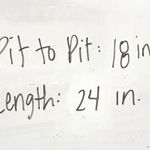 Pit to Pit: 18 in
Length: 24 in.